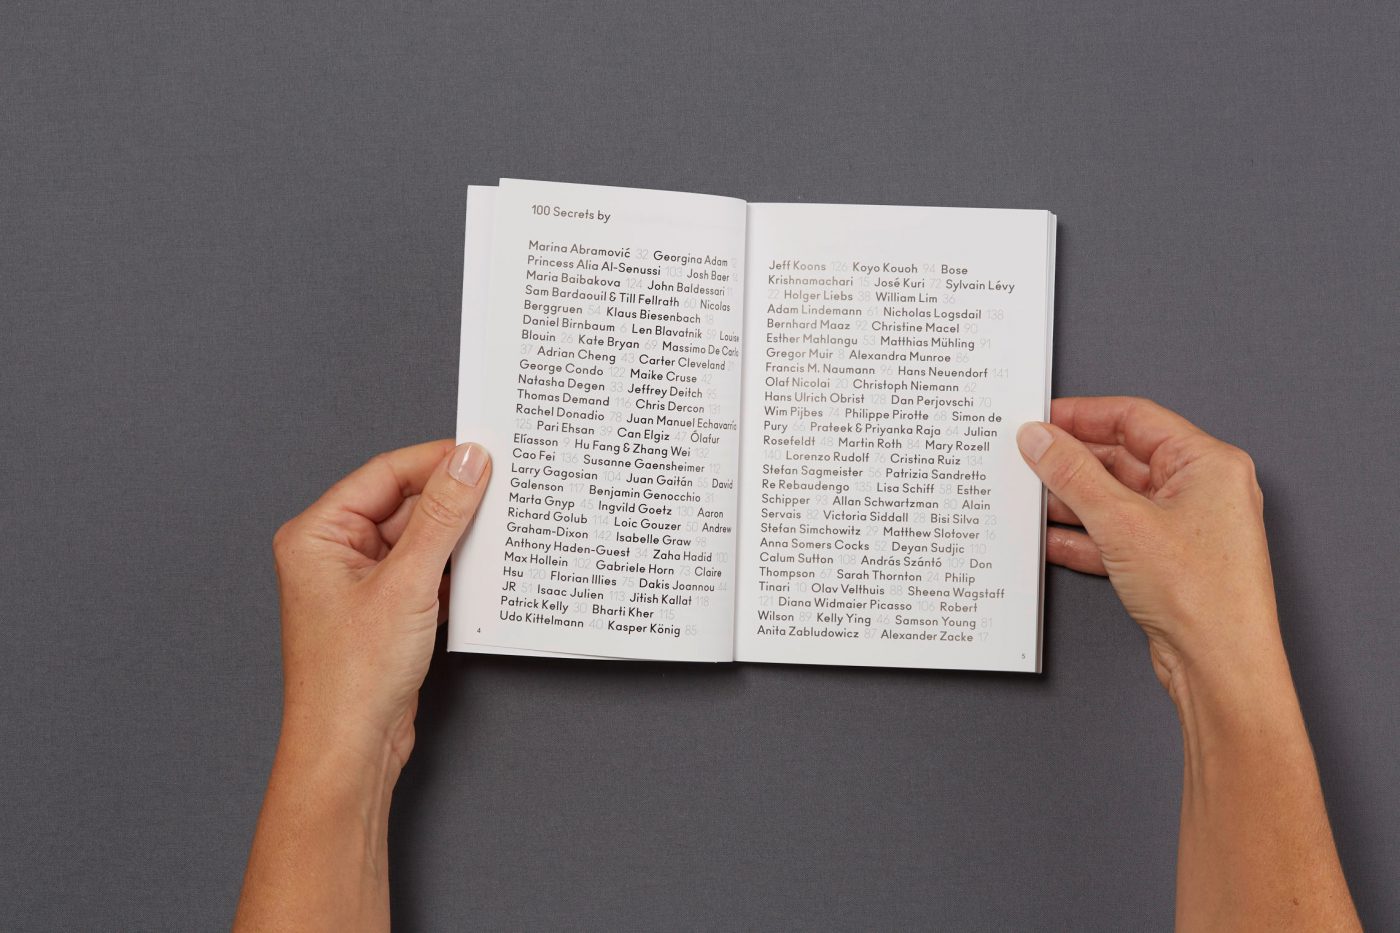 100 Secrets by
Marina Abramović 32 Georgina Adam 12
Princess Alia Al-Senussi 103 Josh Baer
Maria Baibakova 124 John Baldessari 11
Sam Bardaouil & Till Fellrath 60 Nicolas
Berggruen 54 Klaus Biesenbach 18
Daniel Birnbaum 6 Len Blavatnik 59 Louise
Blouin 26 Kate Bryan 69 Massimo De Carlo
37 Adrian Cheng 43 Carter Cleveland
George Condo 122 Maike Cruse 42
Natasha Degen 33 Jeffrey Deitch 95
Thomas Demand 116 Chris Dercon 131
Rachel Donadio 78 Juan Manuel Echavarría
125 Pari Ehsan 39 Can Elgiz 47 Ólafur
Elíasson 9 Hu Fang & Zhang Wei 132
Cao Fei 136 Susanne Gaensheimer 112
Larry Gagosian 104 Juan Gaitán 55 David
Galenson 117 Benjamin Genocchio 31
Marta Gnyp 45 Ingvild Goetz 130 Aaron
Richard Golub 114 Loic Gouzer 50 Andrew
Graham-Dixon 142 Isabelle Graw 98
Anthony Haden-Guest 34 Zaha Hadid 100
Max Hollein 102 Gabriele Horn 73 Claire
Hsu 120 Florian Illies 75 Dakis Joannou 44
JR 51 Isaac Julien 113 Jitish Kallat 118
Patrick Kelly 30 Bharti Kher 115
Udo Kittelmann 40 Kasper König 85
4
Jeff Koons 126 Koyo Kouoh 94 Bose
Krishnamachari 15 José Kuri 72 Sylvain Lévy
22 Holger Liebs 38 William Lim 36
Adam Lindemann 61 Nicholas Logsdail 138
Bernhard Maaz 92 Christine Macel 90
Esther Mahlangu 53 Matthias Mühling 91
Gregor Muir 8 Alexandra Munroe 86
Francis M. Naumann 96 Hans Neuendorf 141
Olaf Nicolai 20 Christoph Niemann 62
Hans Ulrich Obrist 128 Dan Perjovschi 70
Wim Pijbes 74 Philippe Pirotte 68 Simon de
Pury 66 Prateek & Priyanka Raja 64 Julian
Rosefeldt 48 Martin Roth 84 Mary Rozell
140 Lorenzo Rudolf 76 Cristina Ruiz 134
Stefan Sagmeister 56 Patrizia Sandretto
Re Rebaudengo 135 Lisa Schiff 58 Esther
Schipper 93 Allan Schwartzman 80 Alain
Servais 82 Victoria Siddall 28 Bisi Silva 23
Stefan Simchowitz 29 Matthew Slotover 16
Anna Somers Cocks 52 Deyan Sudjic 110
Calum Sutton 108 András Szántó 109 Don
Thompson 67 Sarah Thornton 24 Philip
Tinari 10 Olav Velthuis 88 Sheena Wagstaff
121 Diana Widmaier Picasso 106 Robert
Wilson 89 Kelly Ying 46 Samson Young 81
Anita Zabludowicz 87 Alexander Zacke 17
5